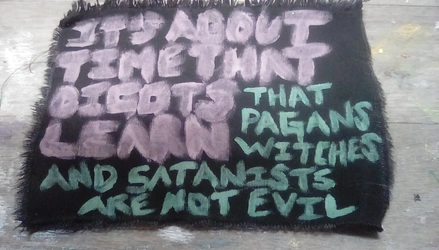 IT'S ABOUT
TIME THAT
BIGOTS
LEARN
THAT
PAGANS
WITCHES
AND SATANISTS
ARE NOT EVIL